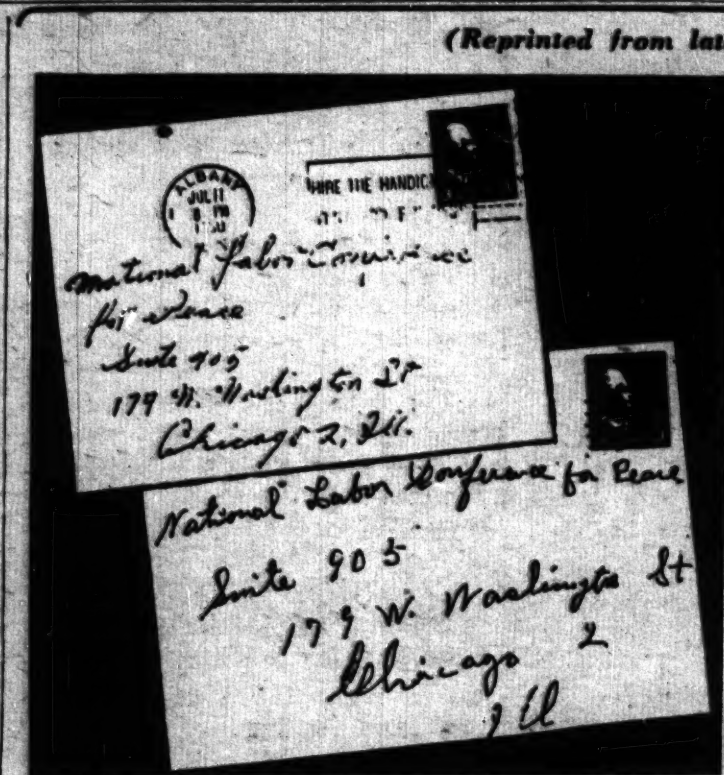 (Reprinted from lat
ALBANY
JUL 11
PM
HIRE THE HANDIC
National Labor Conference
for Peace
Suite 905
179 W. Washington St
Chicago 2, Ill.
National Labor Conference for Peace
Suite 905
179 W. Washington St
Chicago 2
Ill